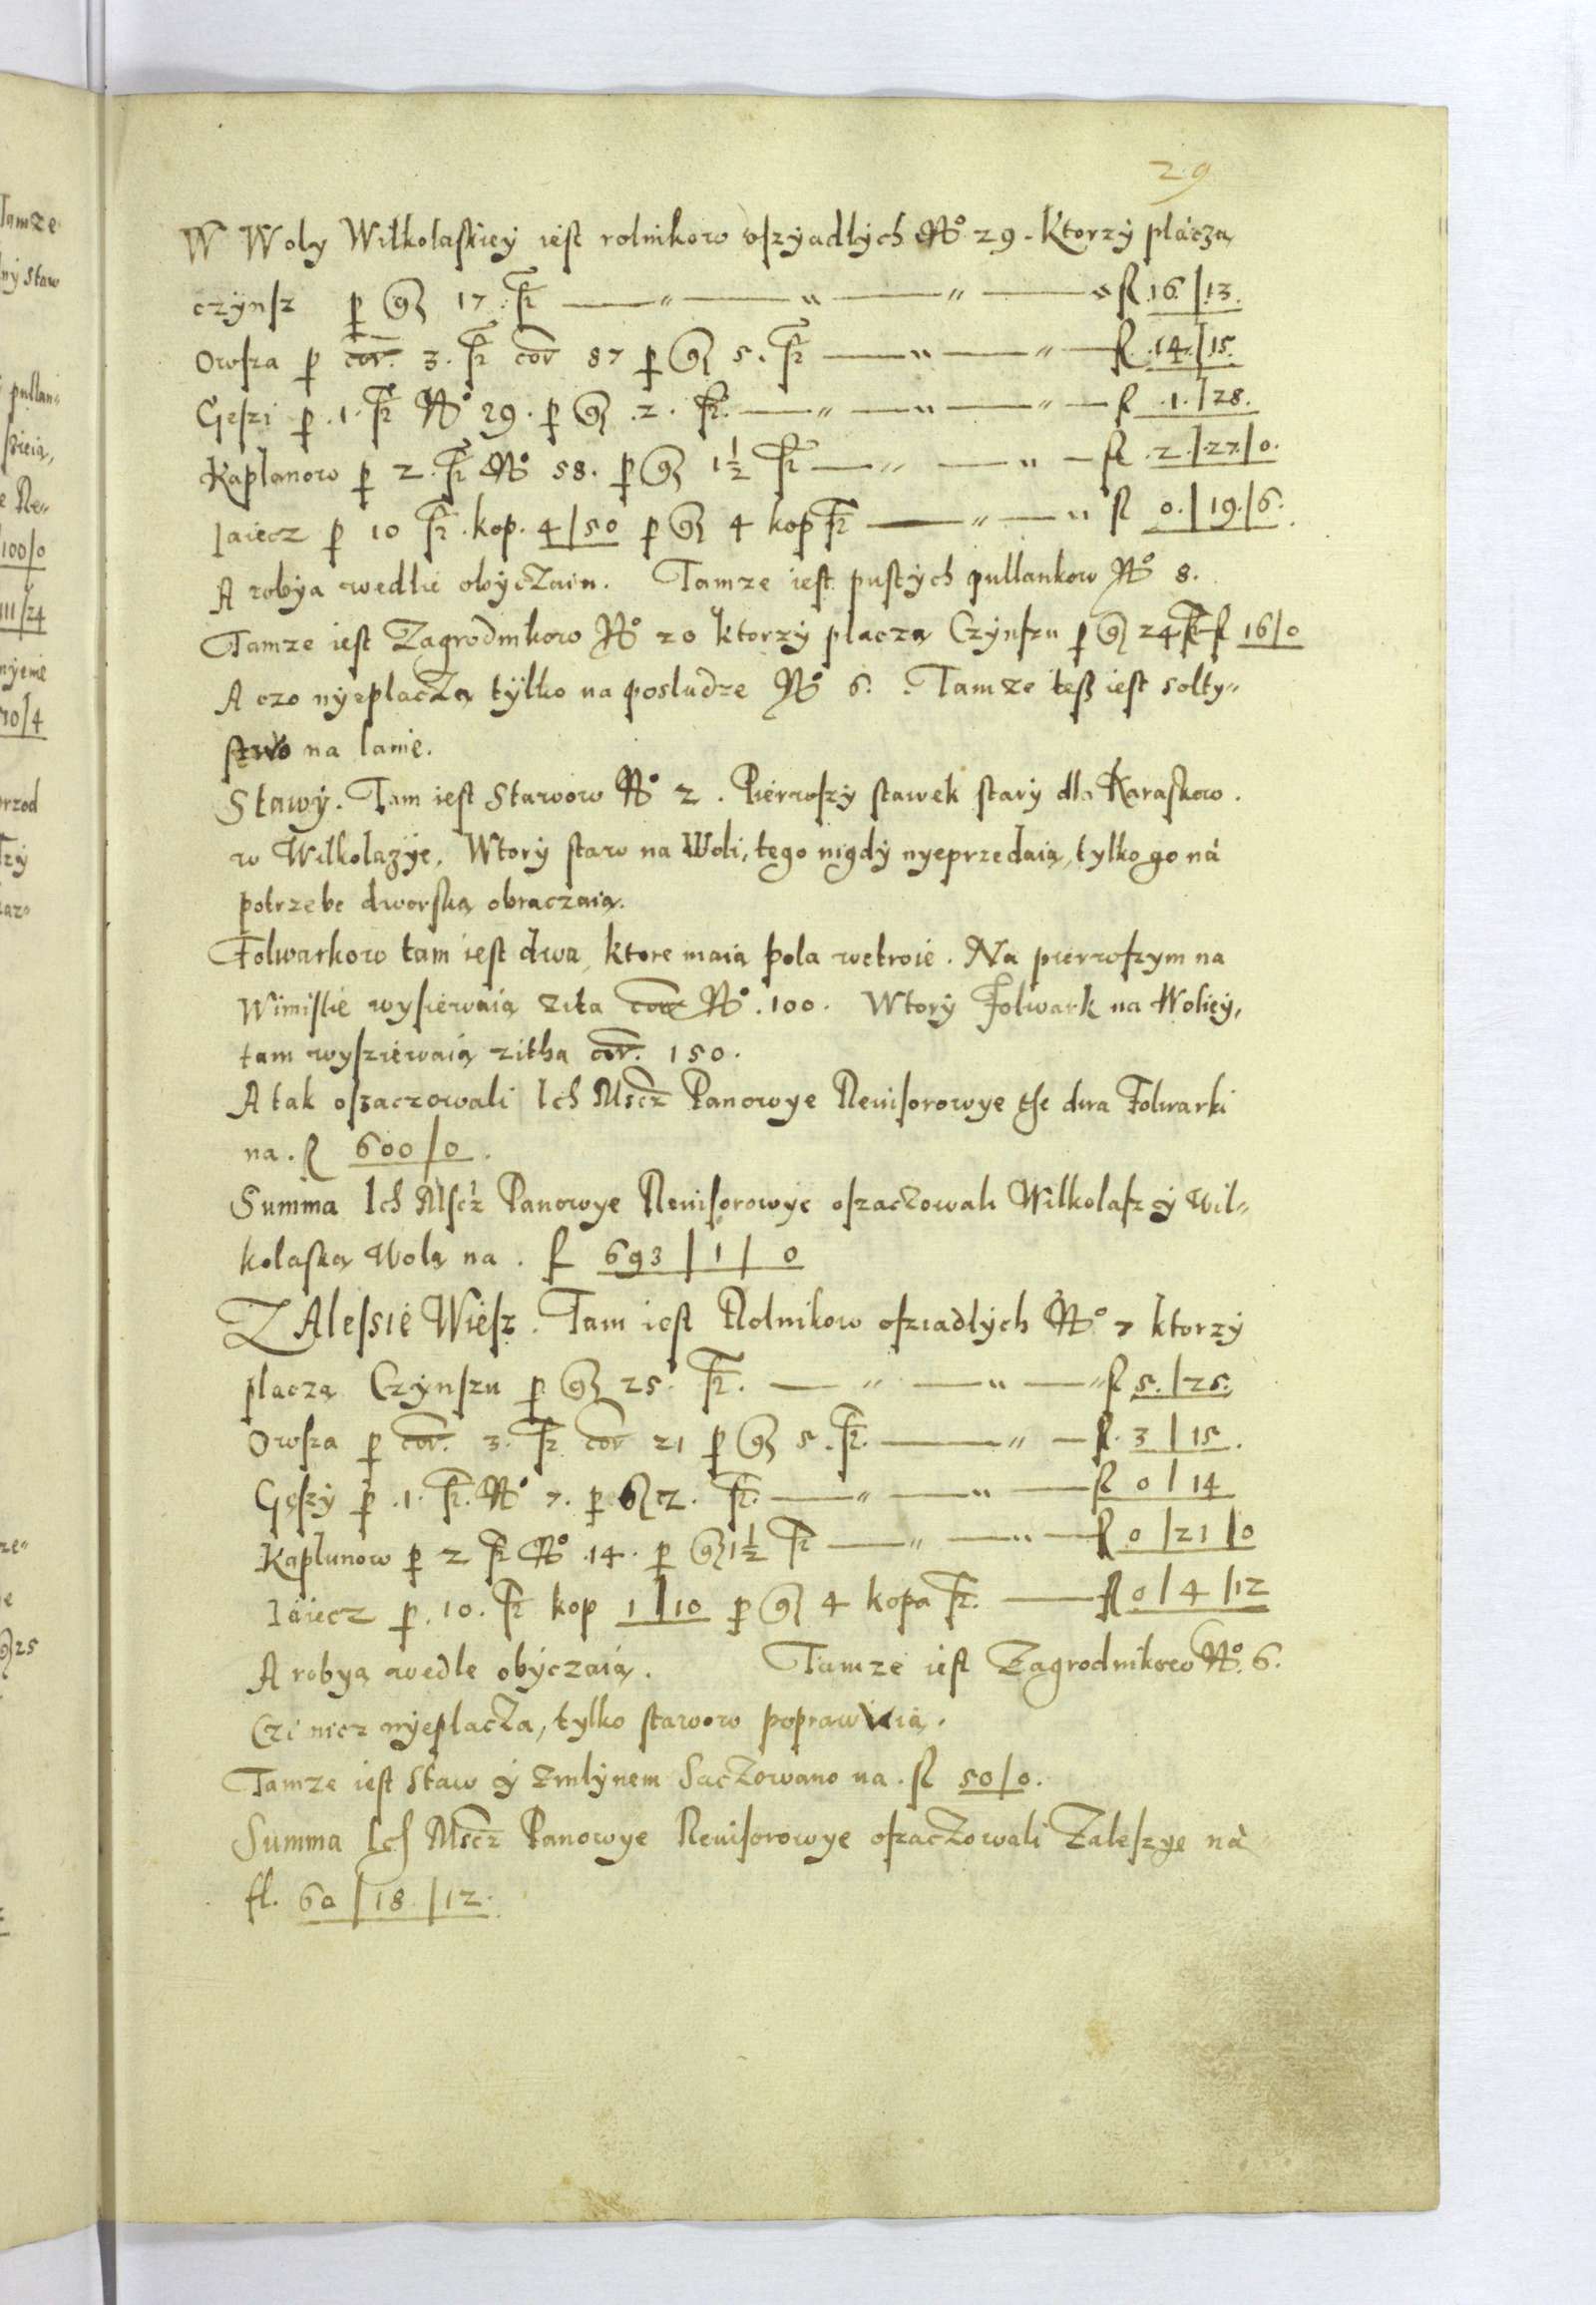 29
W Woly Wilkolaskiey iest rolnikow oszyadlych No 29. Ktorzy placza
czynsz p g 17. fr — fl 16/13.
Owsza p cor. 3. fr cor 87 p g 5. fr — fl. 14/15.
Gęszi p .1. fr No 29. p g .2. fr. — fl .1./28.
Kaplonow p 2. fr No 58. p g 1½ fr — fl .2./27/0.
Iaiecz p 10 fr. kop. 4/50 p g 4 kop fr — fl 0./19./6.
A robya wedlie obyczaiu. Tamze iest pustych pullankow No 8.
Tamze iest Zagrodnikow No 20 ktorzy placza Czynszu p g 24 fr fl 16/0
A czo nyeplaczą tylko na posludze No 6. Tamze tesz iest solty=
stwo na lanie.
Stawy. Tam iest Stawow No 2. Pierwszy stawek stary dla Karaskow.
w Wilkolazye. Wtory staw na Woli, tego nigdy nyeprzedaią, tylko go na
potrzebe dworską obraczaią.
Folwarkow tam iest dwa, ktore maią pola wetroie. Na pierwszym na
Wimislie wysiewaią zita cor No .100. Wtory Folwark na Woliey,
tam wysziewaią zitha cor. 150.
A tak oszaczowali Ich Mscz Panowye Reuisorowye the dwa Folwarki
na. fl 600/0.
Summa Ich Mscz Panowye Reuisorowye oszaczowali Wilkolasz y Wil=
kolaską Wolą na. fl 693/1/0
ZAlessie Wiesz. Tam iest Rolnikow osziadlych No 7 ktorzy
placzą Czynszu p g 25. fr. — fl 5./25.
Owsza p cor. 3. fr cor 21 p g 5. fr. — fl. 3/15.
Gęszy p .1. fr. No 7. p g 2. fr. — fl 0/14
Kaplunow p 2 fr No .14. p g 1½ fr — fl 0/21/0
Iaiecz p .10. fr kop 1/10 p g 4 kopa fr. — fl 0/4/12
A robyą wedle obyczaią. Tamze iest Zagrodnikow No. 6.
Czi nicz nyeplacza, tylko stawow poprawuią.
Tamze iest Staw y zmlynem Saczowano na. fl 50/0.
Summa Ich Mscz Panowye Reuisorowye oszaczowali Zaleszye na
fl. 60/18/12.